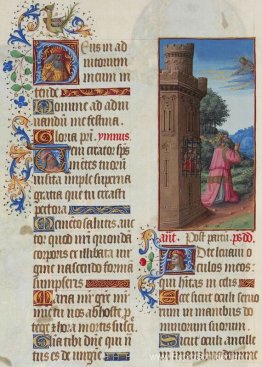 Deus in ad
iutorium
meum in
tende
Domine ad adiu
uandū me festina.
Gloria prī. ymnus.
Veni creator sp̄s
mētes tuorū
visita imple superna
gratia que tu creasti
pectora
Memēto salutis auc
tor quod nr̄i quondā
corporis ex illibata vir
gine nascendo formā
sumpseris
Maria mr̄ grē mr̄
mīe tu nos ab hoste p
tege & hora mortis suscipe
Gloria tibi dn̄e qui na
tus es de uirgīe
ant. Post partū. psō
Ad te leuaui o
culos meos:
qui hītas in celis
Ecce sicut oculi seruo
rum in manibus do
minorum suorum.
Sicut oculi ancille
in manibus domine